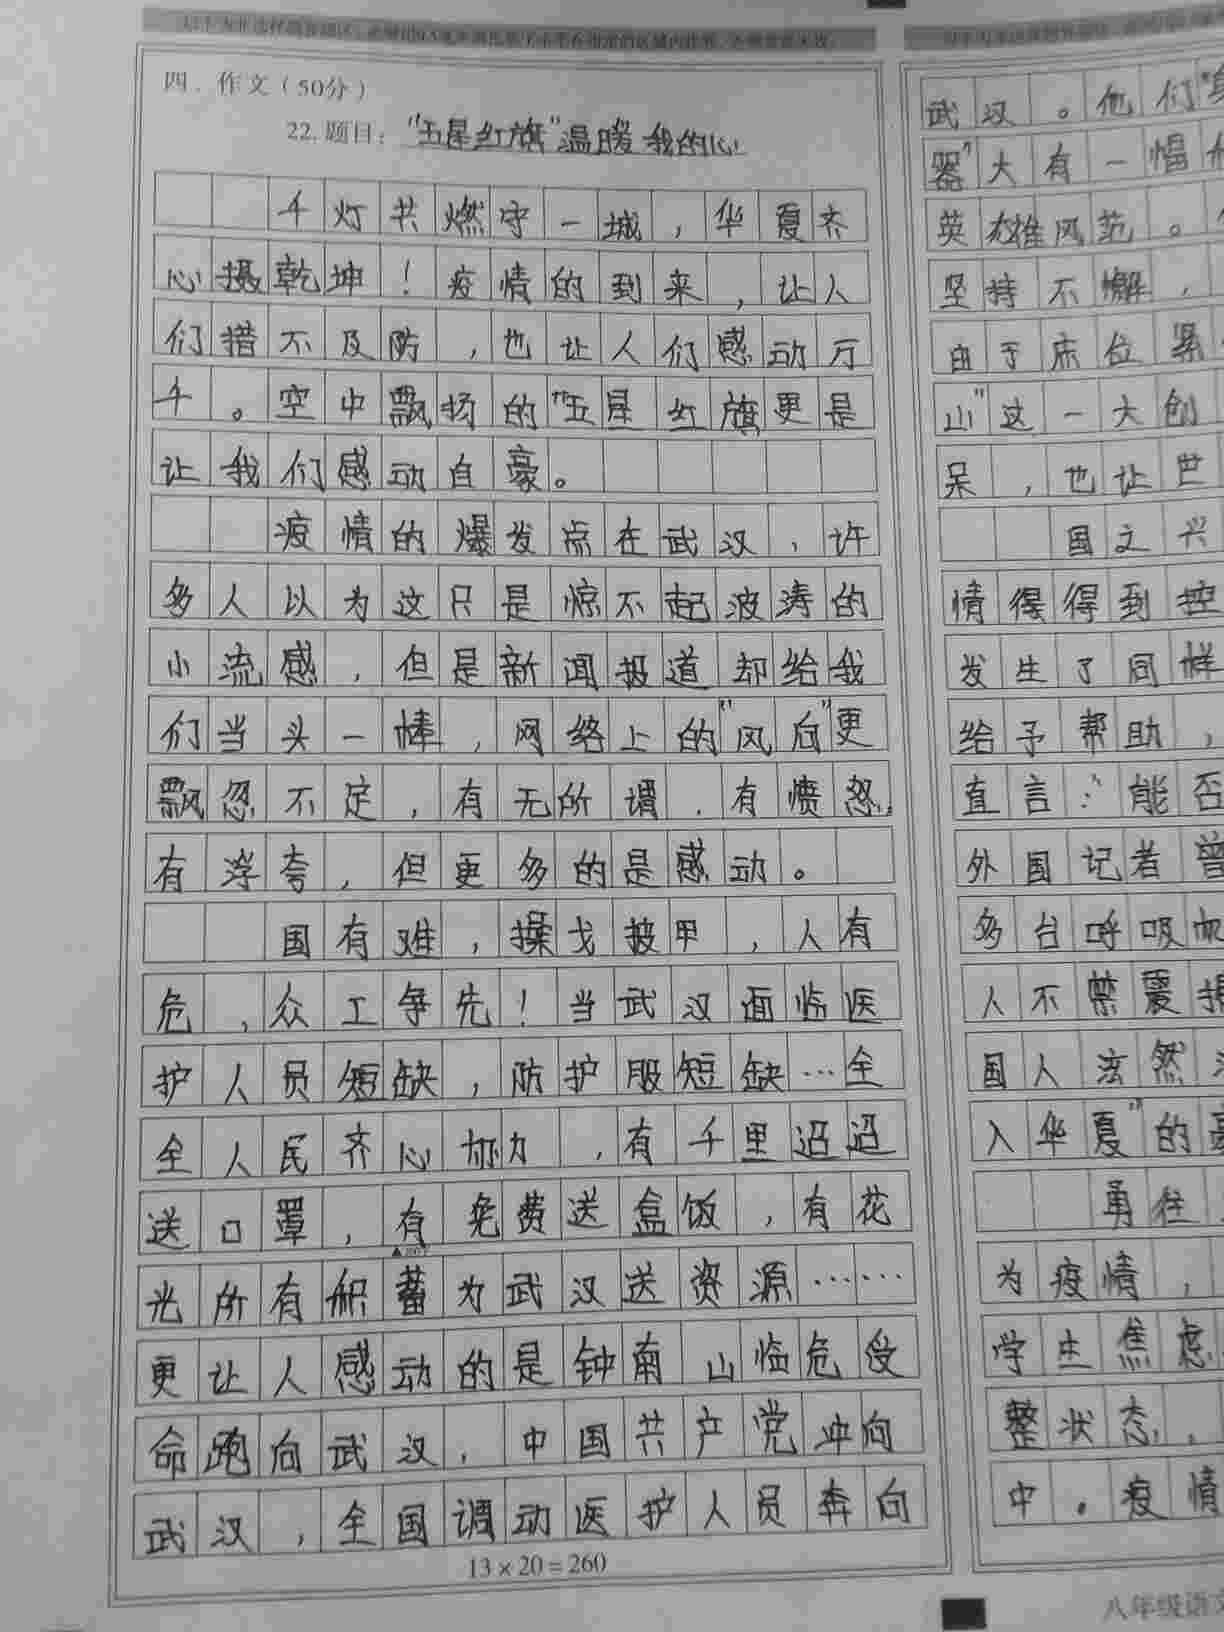 四．作文（50分）
22.题目："五星红旗"温暖我的心
千灯共燃守一城，华夏齐
心摄乾坤！疫情的到来，让人
们措不及防，也让人们感动万
千。空中飘扬的"五星红旗更是
让我们感动自豪。
疫情的爆发点在武汉，许
多人以为这只是惊不起波涛的
小流感，但是新闻报道却给我
们当头一棒，网络上的"风向"更
飘忽不定，有无所谓，有愤怒，
有浮夸，但更多的是感动。
国有难，操戈披甲，人有
危，众工争先！当武汉面临医
护人员短缺，防护服短缺…全
全人民齐心协力，有千里迢迢
送口罩，有免费送盒饭，有花
光所有积蓄为武汉送资源……
更让人感动的是钟南山临危受
命跑向武汉，中国共产党冲向
武汉，全国调动医护人员奔向
13×20=260
武汉。他们"
器"大有一幅
英雄风范。
坚持不懈，
由于床位紧
山"这一大创
呆，也让世
国之兴
情得得到控
发生了同样
给予帮助，
直言：能否
外国记者曾
多台呼吸
人不禁震撼
国人泫然
入华夏"的
勇往
为疫情，
学生焦虑
整状态，
中。疫情
八年级语文